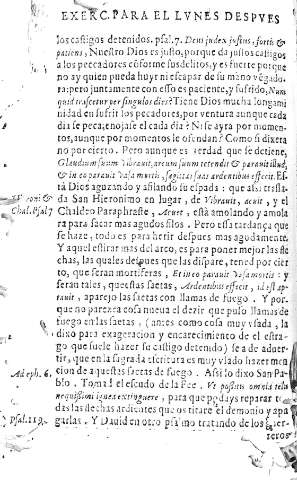 EXERC. PARA EL LVNES DESPVES
los castigos detenidos. psal. 7. Deus judex justus, fortis &
patiens, Nuestro Dios es justo, porque da justos castigos
a los pecadores cõforme sus delitos, y es fuerte porque
no ay quien pueda huyr ni escapar de su mano vẽgado
ra: pero juntamente con esso es paciente, y sufrido, Num
quid irascetur per singulos dies? Tiene Dios mucha longami
nidad en sufrir los pecadores, por ventura aunque cada
dia se peca, enojase el cada dia? Ni se ayra por momen-
tos, aunque por momentos le ofendan? Como si dixera
no por cierto. Pero aunque es verdad que se detiene,
Gladium suum vibravit, arcum suum tetendit & paravit illud,
& in eo paravit vasa mortis, sagittas suas ardentibus effecit. Es
tà Dios aguzando y afilando su espada: que assi trasla-
da San Hieronimo en lugar, de Vibravit, acuit, y el
Chaldeo Paraphraste, Acuet, està amolando y amola
ra para sacar mas agudos filos. Pero essa tardança que
se haze, todo es para herir despues mas agudamente.
Y aquel estirar mas del arco, es para poner mejor las fle
chas, las quales despues que las dispare, tened por cier
to, que seran mortiferas, Et in eo paravit vasa mortis: y
seran tales, que estas saetas, Ardentibus effecit, id est ap-
travit, aparejo las saetas con llamas de fuego. Y por-
que no parezca cosa nueva el dezir que puso llamas de
fuego en las saetas, (antes como cosa muy vsada, la
dixo para exageracion y encarecimiento de el estra-
go que suele hazer su castigo detenido) se a de adver-
tir, que en la sagrada escritura es muy vsado hazer men
cion de aquestas saetas de fuego. Assi lo dixo San Pa-
Ad eph. 6.
blo. Tomad el escudo de la Fee. Vt positis omnia tela
nequissimi ignea extinguere, para que podays reparar to
das las flechas ardientes que os tirare el demonio y apa
Psal. 119.
garlas. Y David en otro psalmo tratando de los
teros
Chal. Psal 7